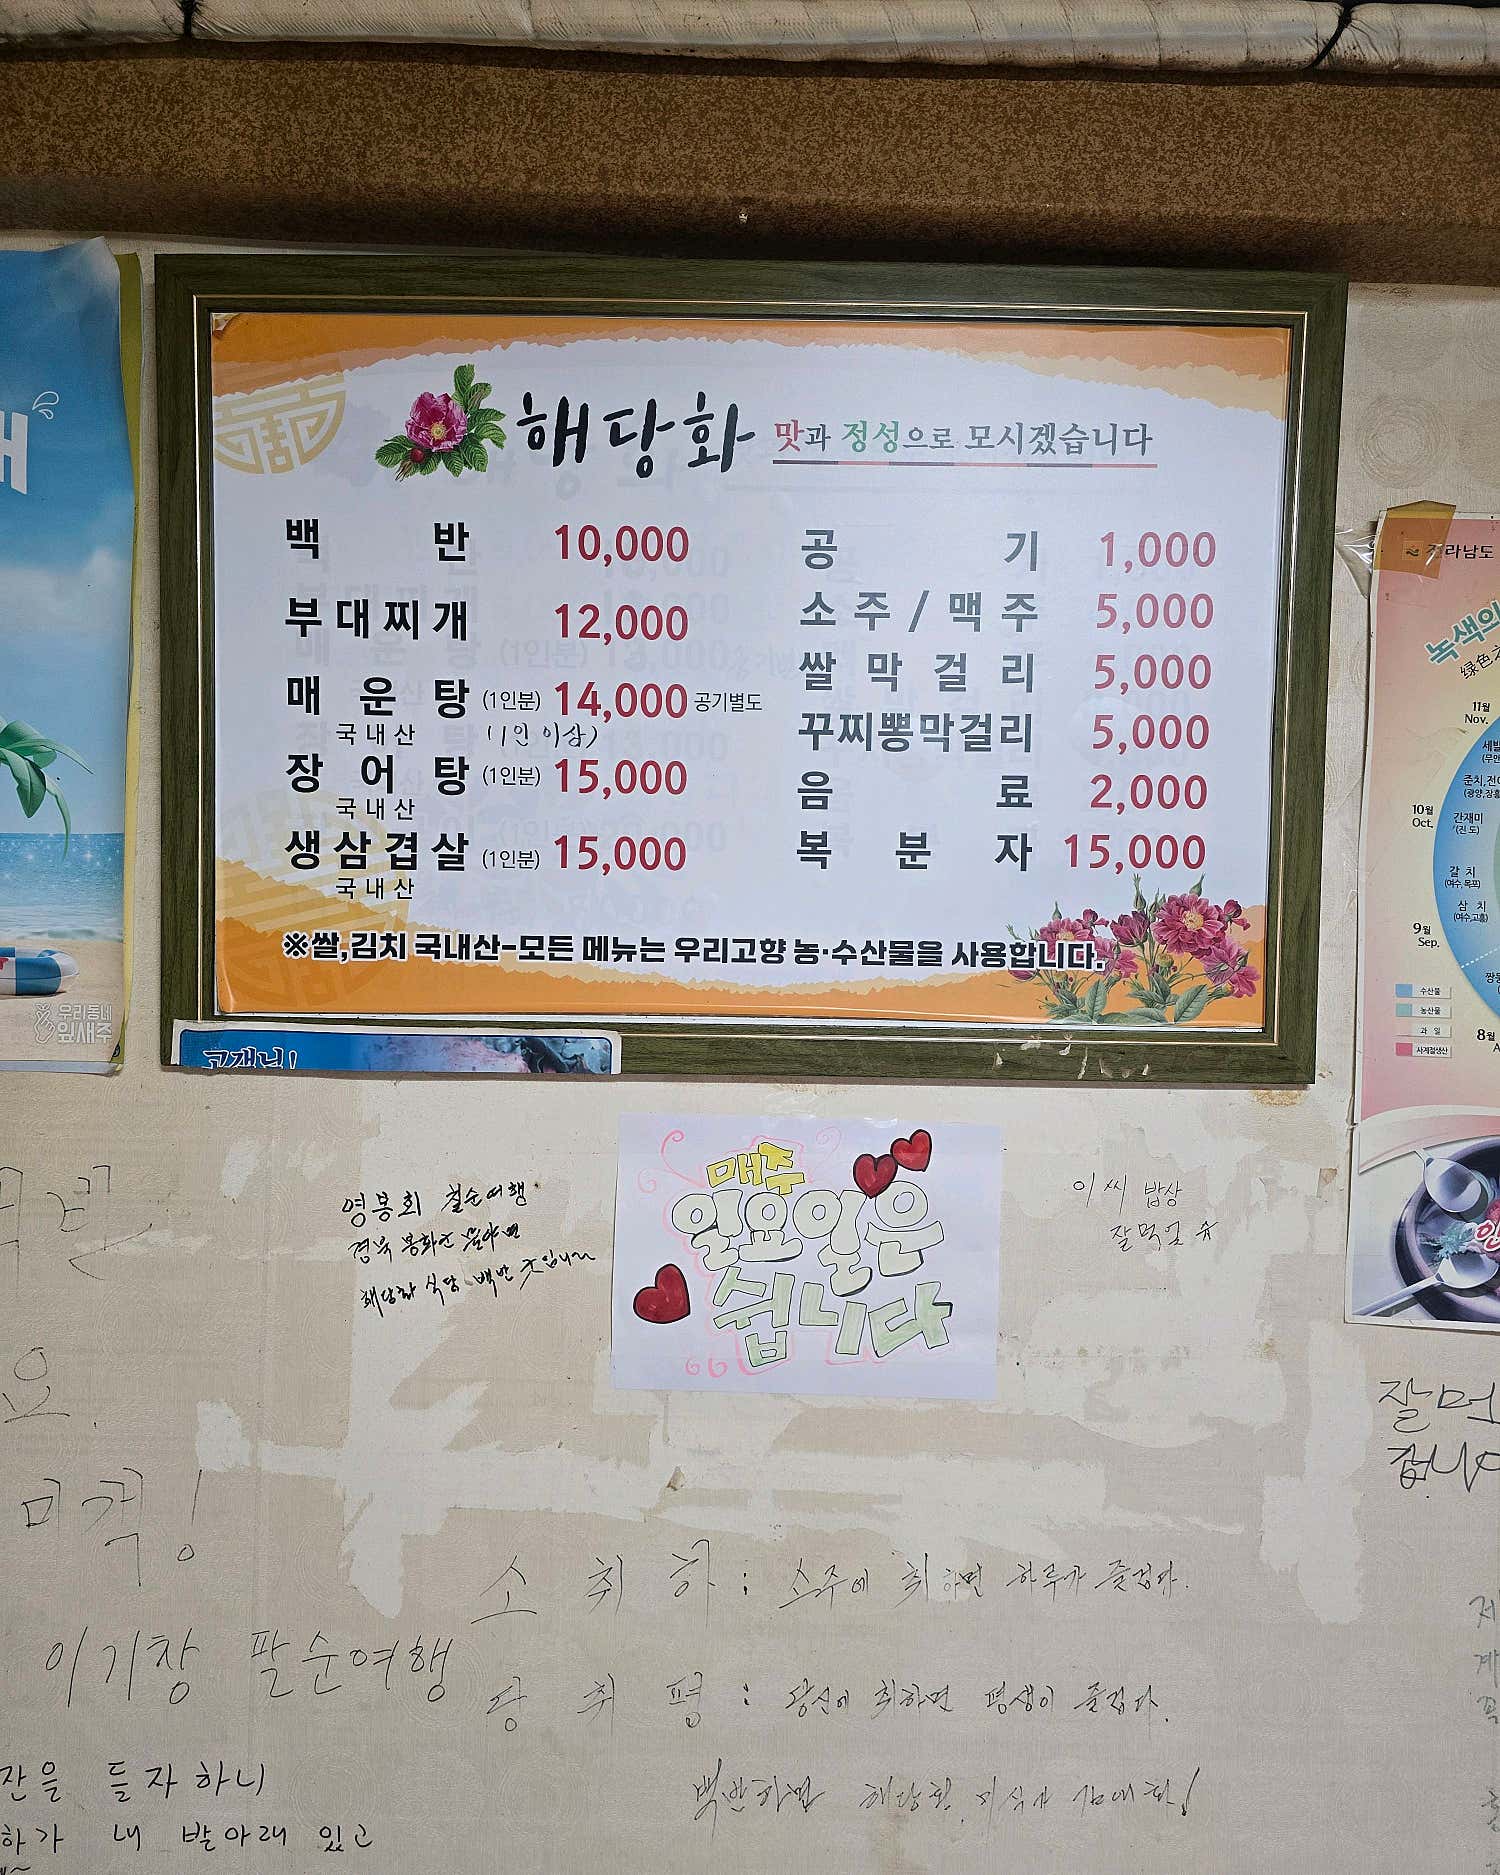 해당화 맛과 정성으로 모시겠습니다
백 반 10,000
부대찌개 12,000
매운탕 (1인분) 14,000 공기별도
국내산 (1인 이상)
장어탕 (1인분) 15,000
국내산
생삼겹살 (1인분) 15,000
국내산
공 기 1,000
소주/맥주 5,000
쌀막걸리 5,000
꾸찌뽕막걸리 5,000
음 료 2,000
복분자 15,000
※쌀,김치 국내산-모든 메뉴는 우리고향 농·수산물을 사용합니다.
우리동네
잎새주
고객님!
전라남도
녹색의
11월
Nov.
10월
Oct.
준치,전어
간재미
(진도)
갈치
(여수,목포)
삼치
(여수,고흥)
9월
Sep.
8월
수산물
농산물
과일
사계절생산
매주
일요일은
쉽니다
영봉회 칠순여행
경북 봉화산
해당화 식당 백반 굿입니다
이씨 밥상
잘먹었슈
잘먹
갑니다
요.
미쟉!
이기창 팔순여행
소취하 : 소주에 취하면 하루가 즐겁다.
당취평 : 당신에 취하면 평생이 즐겁다.
백반하면 해당화
잔을 들자하니
하가 내 발아래 있고